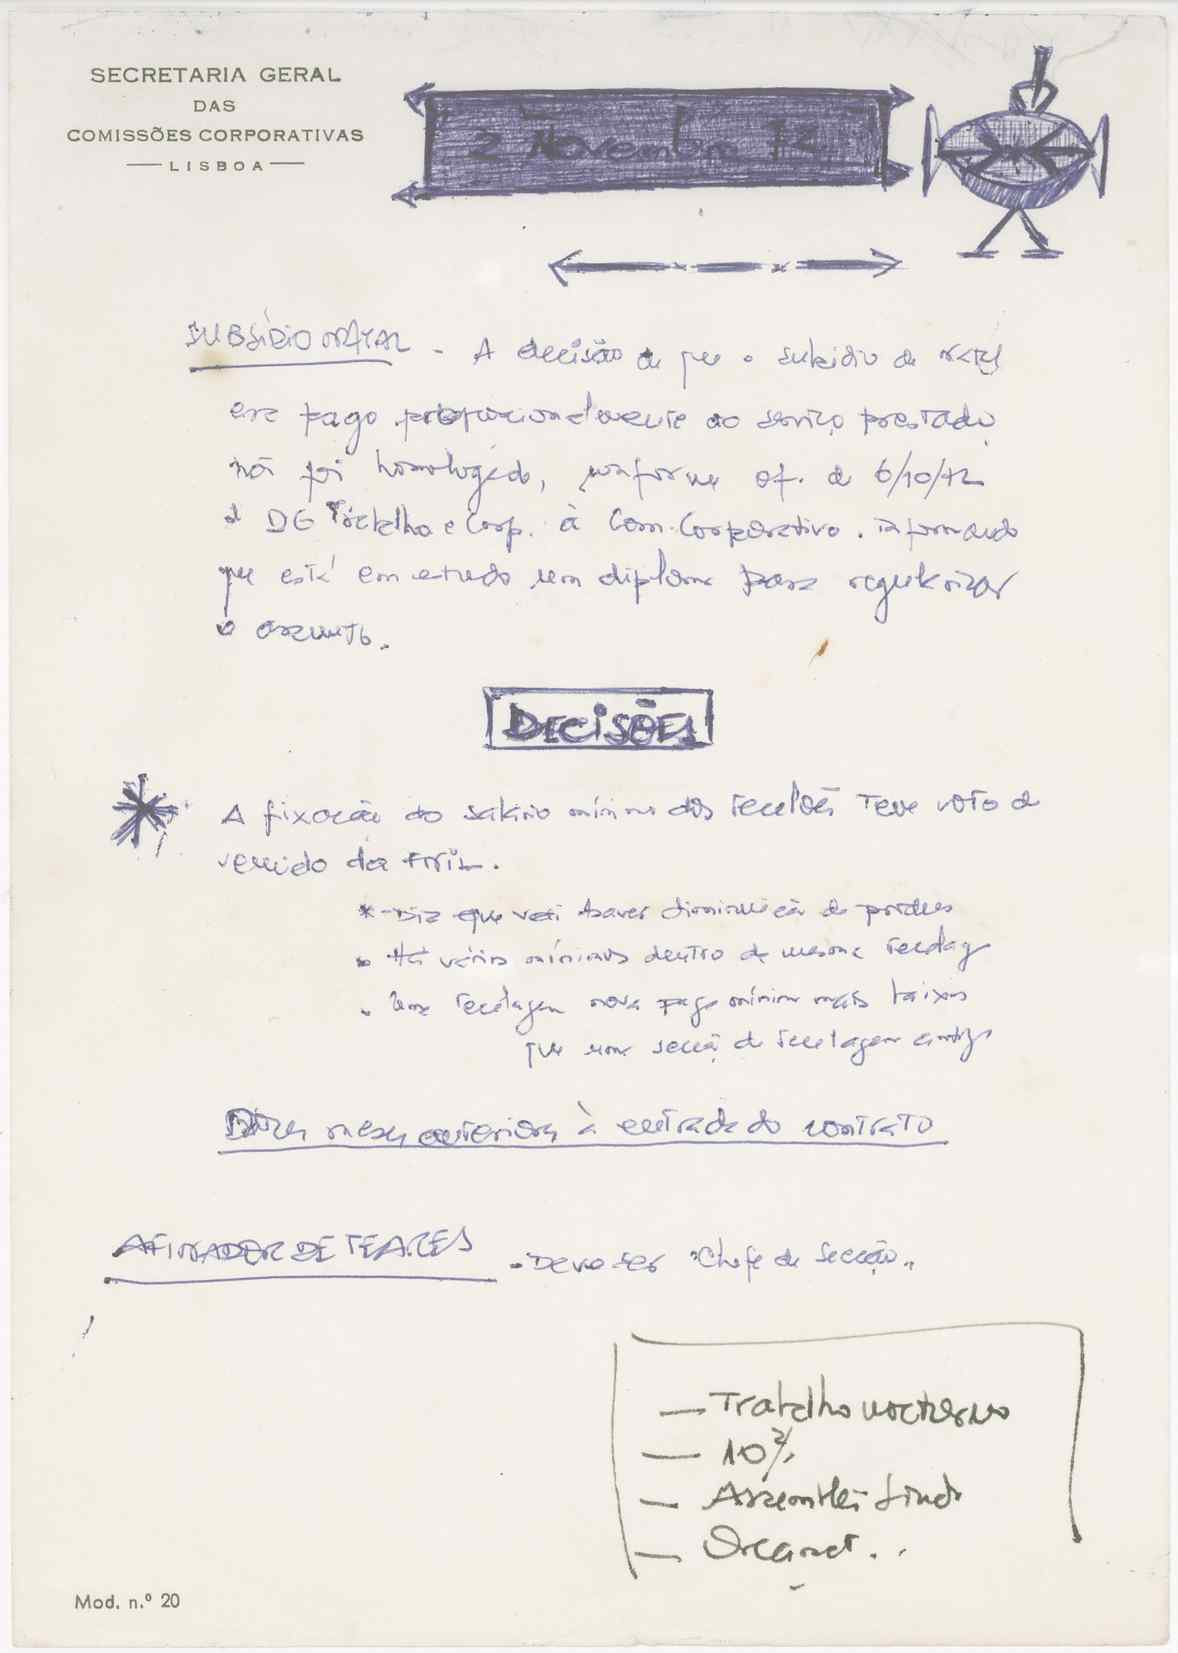 SECRETARIA GERAL
DAS
COMISSÕES CORPORATIVAS
LISBOA
2 Novembro 72
SUBSÍDIO NATAL - A decisão de que o subsídio de natal
era pago proporcionalmente ao serviço prestado
não foi homologado, conforme of. de 6/10/72
d DG Trabalho e Corp. à Com. Corporativa. informando
que está em estudo um diploma para regularizar
o assunto.
DECISÕES
A fixação do salário mínimo dos tecelões teve voto de
vencido da
* - Diz que vai haver diminuição de
• Há vários mínimos dentro da mesma tecelag
• Uma tecelagem nova paga mínimos mais baixos
que uma secção de tecelagem antiga
meses anteriores à entrada do contrato
AFINADOR DE TEARES - Deve ser "Chefe de Secção"
— Trabalho nocturno
— 10%
— Assembleia Sind
— Orçamt..
Mod. n.º 20